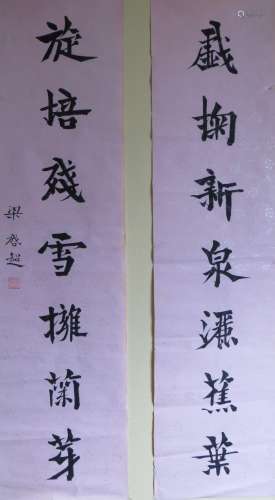 戲掬新泉灑蕉葉
旋培殘雪擁蘭芽
梁啟超